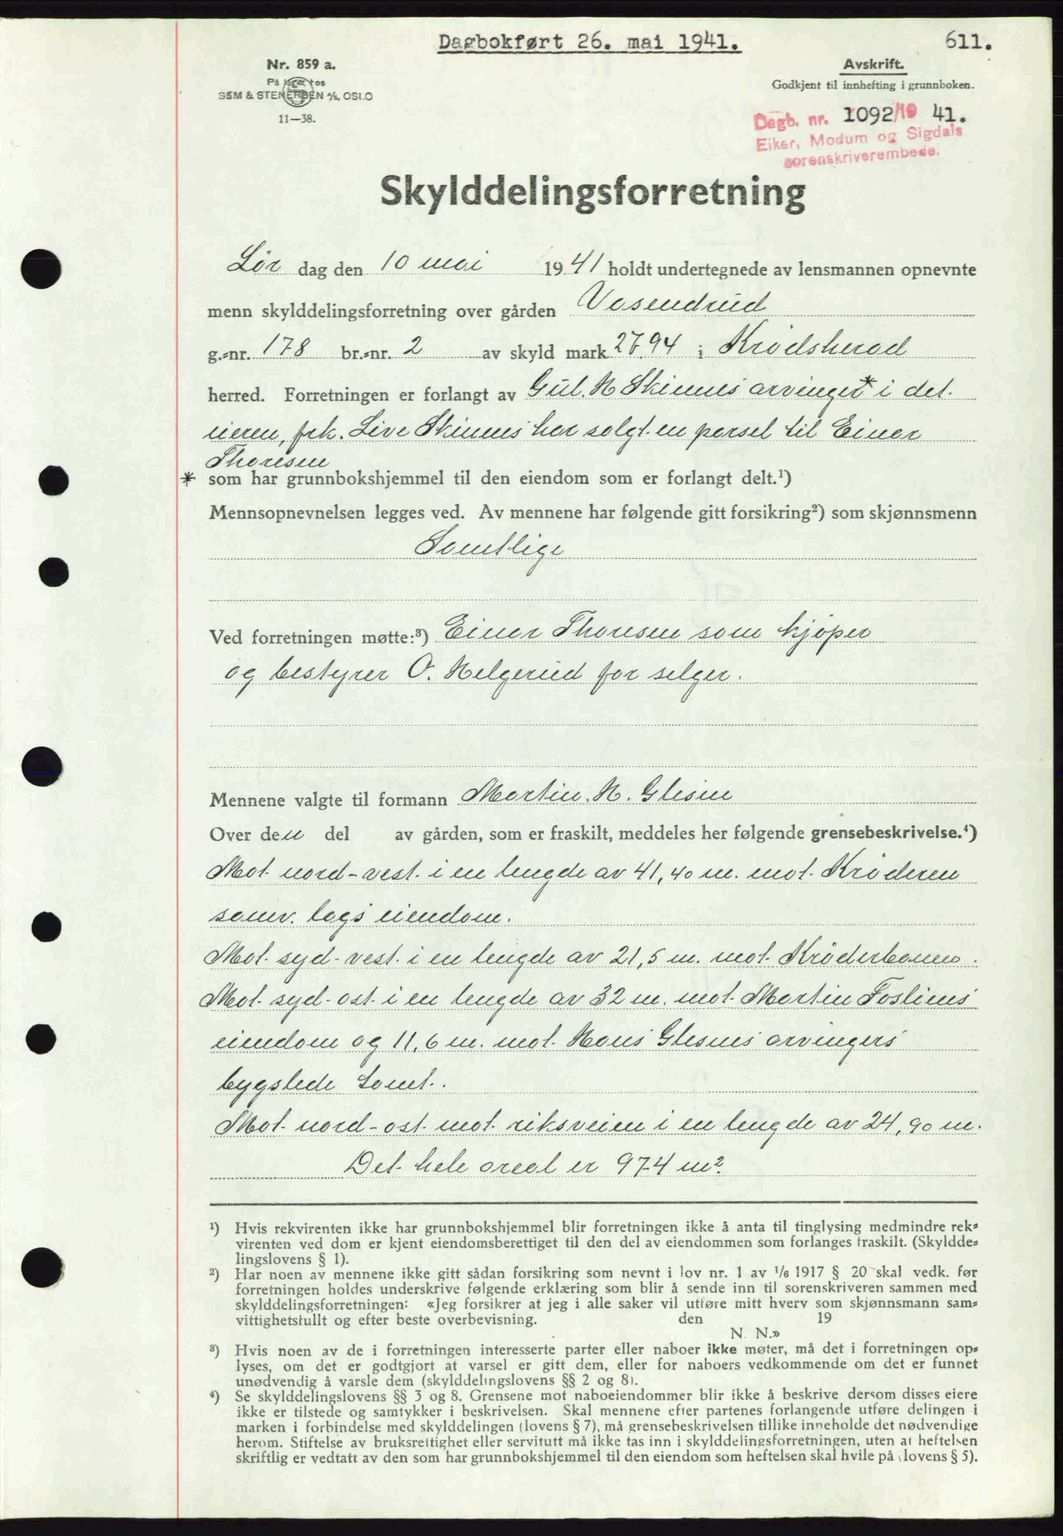 Dagbokført 26. mai 1941.
611.
Nr. 859 a.
På lager hos
SEM & STENERSEN A/S, OSLO
11—38.
Avskrift.
Godkjent til innhefting i grunnboken.
Dagb. nr. 1092/19 41.
Eiker, Modum og Sigdals
sorenskriverembede.
Skylddelingsforretning
Lør dag den 10 mai 1941 holdt undertegnede av lensmannen opnevnte
menn skylddelingsforretning over gården Vasendrud
g.=nr. 178 br.=nr. 2 av skyld mark 27,94 i Krødsherad
herred. Forretningen er forlangt av Gul. H Skinnes arvinger* i det
eieren, frk. Live Skinnes har solgt en parsel til Einar
Thoresen
* som har grunnbokshjemmel til den eiendom som er forlangt delt.¹)
Mennsopnevnelsen legges ved. Av mennene har følgende gitt forsikring²) som skjønnsmenn
Samtlige
Ved forretningen møtte:³) Einar Thoresen som kjøper
og bestyrer O. Helgerud for selger.
Mennene valgte til formann Martin. H. Glesne
Over den del av gården, som er fraskilt, meddeles her følgende grensebeskrivelse.⁴)
Mot nord-vest i en lengde av 41,40 m. mot Krøderen
samv. lags eiendom.
Mot syd-vest i en lengde av 21,5 m. mot Krøderbanen.
Mot syd-ost i en lengde av 32 m. mot Martin Foslies
eiendom og 11,6 m. mot Hans Glesnes arvingers
bygslede tomt.
Mot nord-ost mot riksveien i en lengde av 24,90 m.
Det hele areal er 974 m².
¹) Hvis rekvirenten ikke har grunnbokshjemmel blir forretningen ikke å anta til tinglysing medmindre rek=
virenten ved dom er kjent eiendomsberettiget til den del av eiendommen som forlanges fraskilt. (Skyldde=
lingslovens § 1).
²) Har noen av mennene ikke gitt sådan forsikring som nevnt i lov nr. 1 av ¹/₆ 1917 § 20 skal vedk. før
forretningen holdes underskrive følgende erklæring som blir å sende inn til sorenskriveren sammen med
skylddelingsforretningen: «Jeg forsikrer at jeg i alle saker vil utføre mitt hverv som skjønnsmann sam=
vittighetsfullt og efter beste overbevisning. den 19
N. N.»
³) Hvis noen av de i forretningen interesserte parter eller naboer ikke møter, må det i forretningen op=
lyses, om det er godtgjort at varsel er gitt dem, eller for naboers vedkommende om det er funnet
unødvendig å varsle dem (skylddelingslovens §§ 2 og 8).
⁴) Se skylddelingslovens §§ 3 og 8. Grensene mot naboeiendommer blir ikke å beskrive dersom disses eiere
ikke er tilstede og samtykker i beskrivelsen. Skal mennene efter partenes forlangende utføre delingen i
marken i forbindelse med skylddelingen (lovens § 7), må grensebeskrivelsen tillike inneholde det nødvendige
herom. Stiftelse av bruksrettighet eller servitutt må ikke tas inn i skylddelingsforretningen, uten at heftelsen
skriftlig er vedtatt av den som har grunnbokshjemmel til den eiendom som heftelsen skal hvile på (lovens § 5).